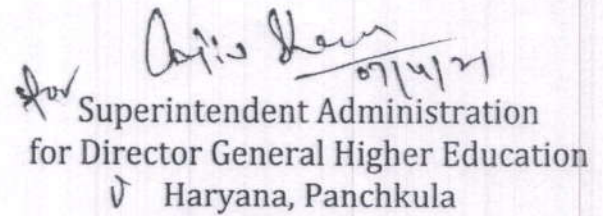 07/4/21
for Superintendent Administration
for Director General Higher Education
Haryana, Panchkula